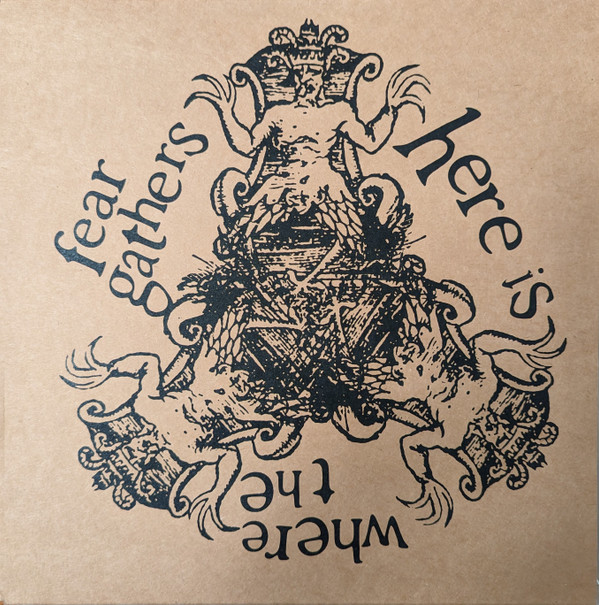 here is
where
the
fear
gathers